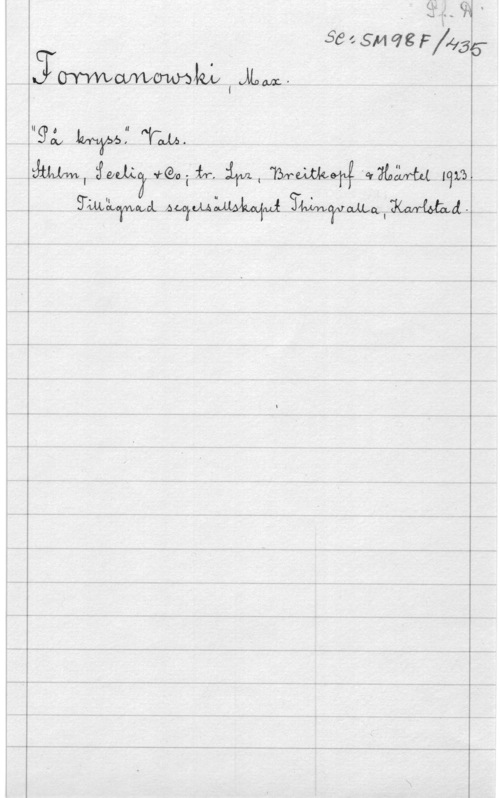 Pf. A
se: SM98F/435
Formanowski, Max.
"På kryss." Vals.
Sthlm, Seelig & Co; tr. Lpz, Breitkopf & Härtel 1923.
Tillägnad segelsällskapet Thingvalla, Karlstad.